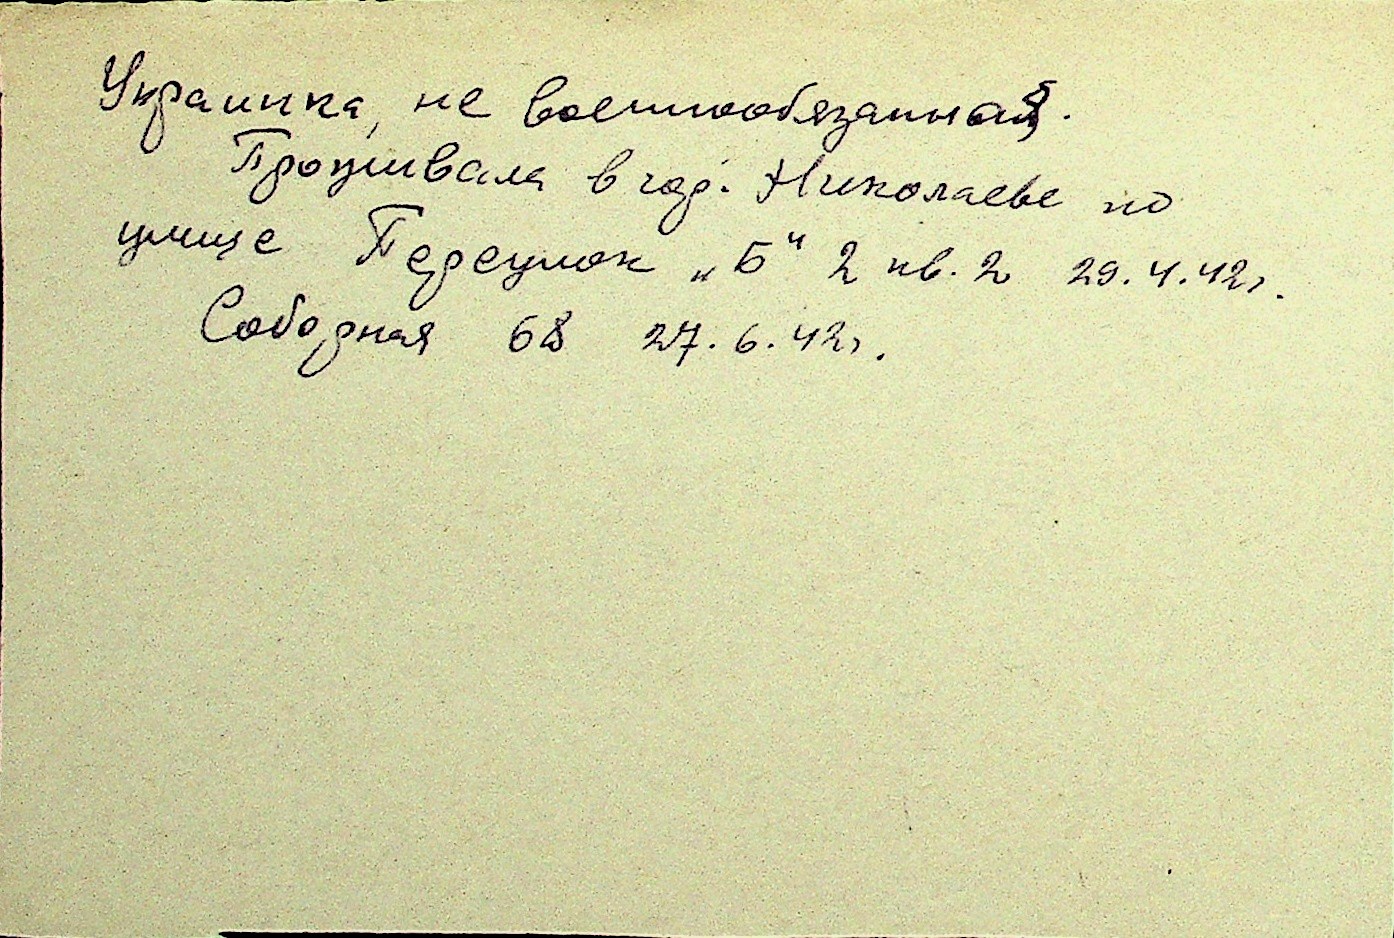 Украинка, не военнообязанная.
Проживала в гор. Николаеве по
улице Переулок „Б“ 2 кв. 2 29.4.42г.
Соборная 68 27.6.42г.